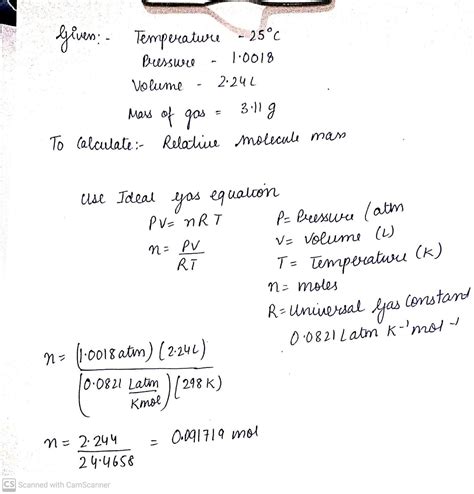 Given:- Temperature - 25°C
Pressure - 1.0018
Volume - 2.24L
Mass of gas = 3.11 g
To Calculate:- Relative molecule mass
Use Ideal gas equation
PV= nRT
n= PV
RT
P= Pressure (atm
V= volume (L)
T= Temperature (K)
n= moles
R= Universal gas constant
0.0821 Latm K⁻¹ mol⁻¹
n= (1.0018 atm) (2.24L)
(0.0821 Latm / Kmol) (298K)
n= 2.244 = 0.091719 mol
24.4658
CS Scanned with CamScanner